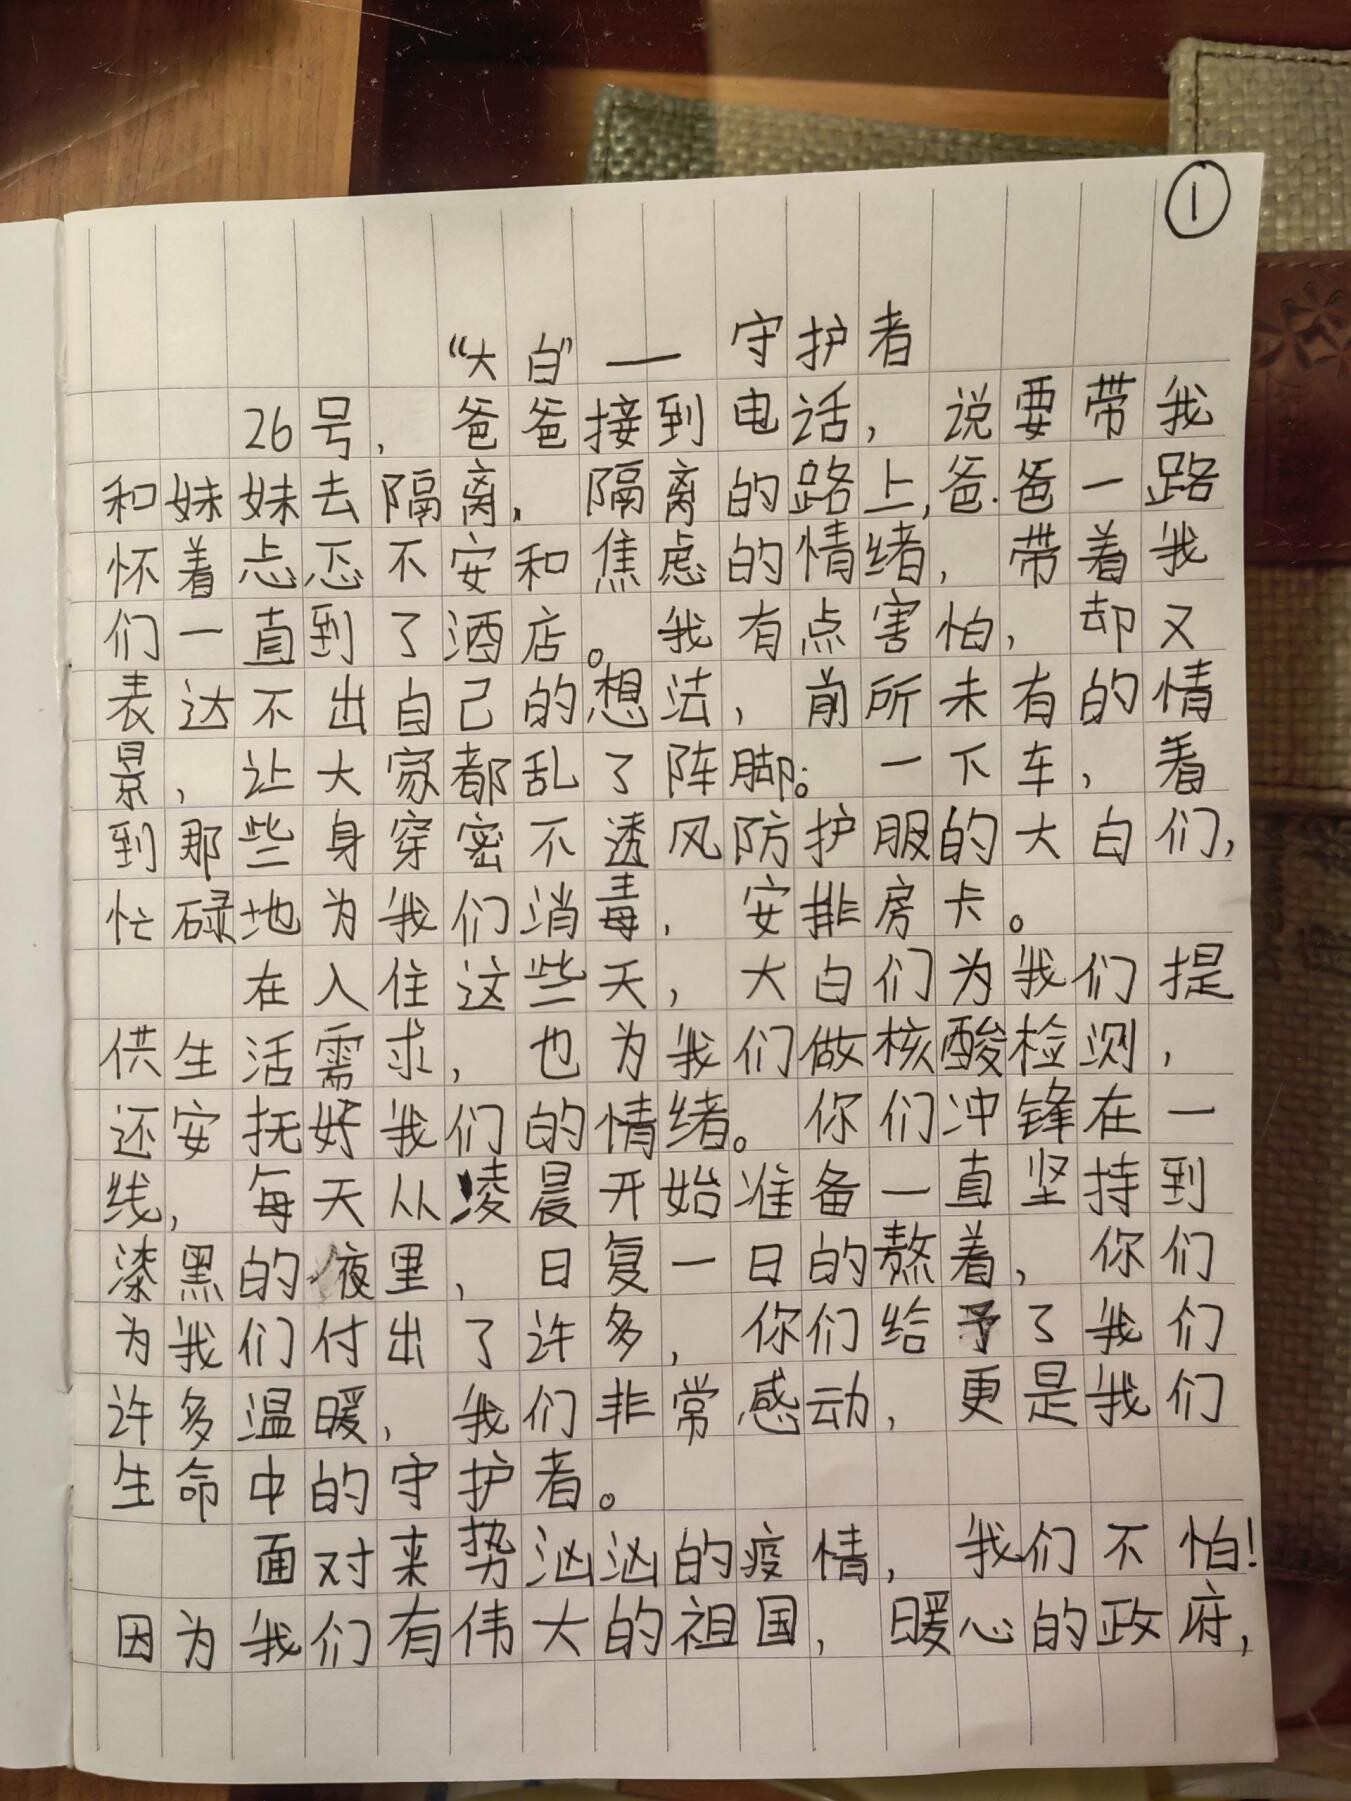 ①
“大白”——守护者
26号，爸爸接到电话，说要带我
和妹妹去隔离，隔离的路上，爸爸一路
怀着忐忑不安和焦虑的情绪，带着我
们一直到了酒店。我有点害怕，却又
表达不出自己的想法，前所未有的情
景，让大家都乱了阵脚。一下车，看
到那些身穿密不透风防护服的大白们，
忙碌地为我们消毒，安排房卡。
在入住这些天，大白们为我们提
供生活需求，也为我们做核酸检测，
还安抚好我们的情绪。你们冲锋在一
线，每天从凌晨开始准备一直坚持到
漆黑的夜里，日复一日的熬着，你们
为我们付出了许多，你们给予了我们
许多温暖，我们非常感动，更是我们
生命中的守护者。
面对来势汹汹的疫情，我们不怕！
因为我们有伟大的祖国，暖心的政府，